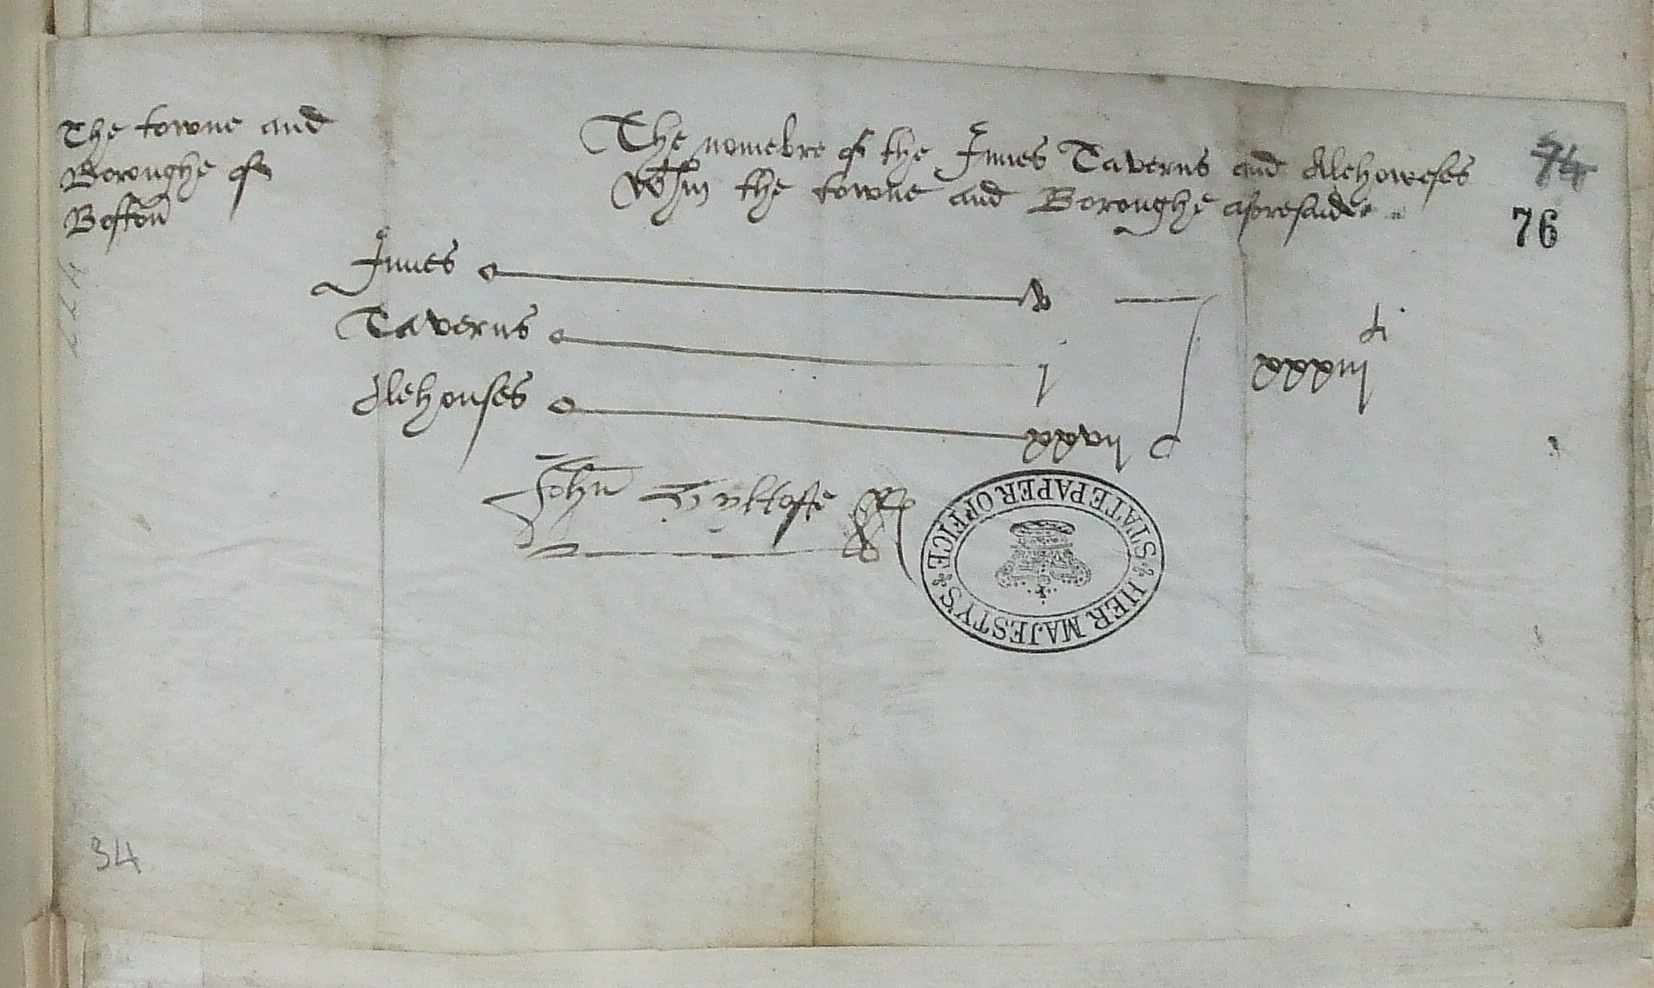 The towne and
Boroughe of
Boston
The nomebre of the Innes Taverns and Alehowses
wthin the towne and Boroughe aforesaide
74
76
Innes v
Taverns j
Alehouses xxvij
xxxiij
John
HER MAJESTY'S STATE PAPER OFFICE
34